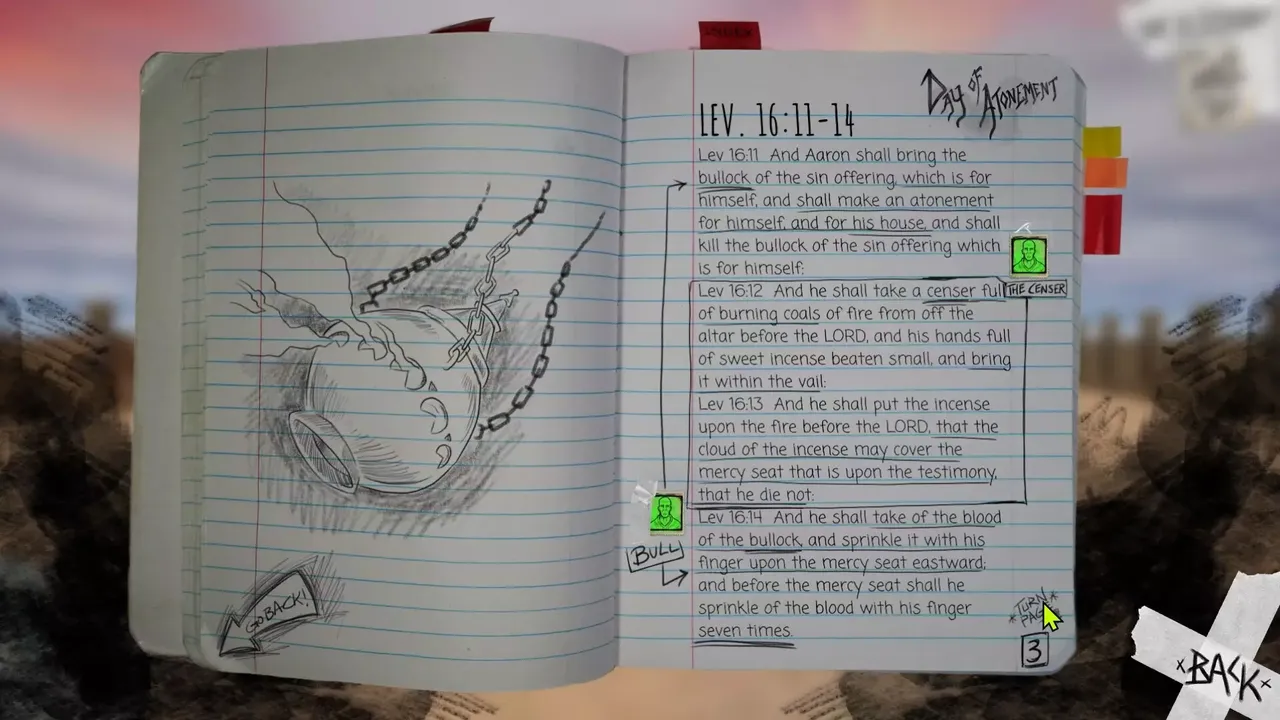 DAY OF ATONEMENT
LEV. 16:11-14
Lev 16:11 And Aaron shall bring the
bullock of the sin offering, which is for
himself, and shall make an atonement
for himself, and for his house, and shall
kill the bullock of the sin offering which
is for himself:
Lev 16:12 And he shall take a censer full
THE CENSER
of burning coals of fire from off the
altar before the LORD, and his hands full
of sweet incense beaten small, and bring
it within the vail:
Lev 16:13 And he shall put the incense
upon the fire before the LORD, that the
cloud of the incense may cover the
mercy seat that is upon the testimony,
that he die not:
Lev 16:14 And he shall take of the blood
of the bullock, and sprinkle it with his
BULL
finger upon the mercy seat eastward;
and before the mercy seat shall he
sprinkle of the blood with his finger
seven times.
GO BACK!
*TURN*
3
xBACKx